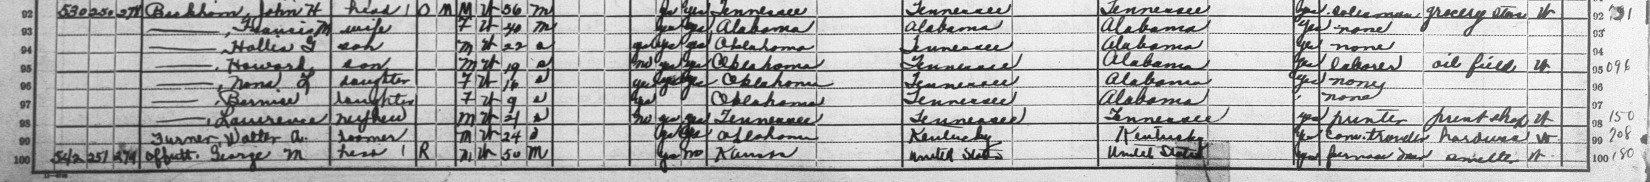 92 530 250 278 Beckhom, John H head 1 O M M W 56 M yes yes Tennessee Tennessee Tennessee yes salesman grocery store W 92
93 ——, M wife F W 40 M yes yes Alabama Alabama Alabama yes none 93
94 ——, Hollis son M W 22 S yes yes Oklahoma Tennessee Alabama yes none 94
95 ——, Howard son M W 19 S no yes yes Oklahoma Tennessee Alabama yes laborer oil field W 95 096
96 ——, daughter F W 16 S yes yes yes Oklahoma Tennessee Alabama yes none 96
97 ——, Bernice daughter F W 9 S yes Oklahoma Tennessee Alabama none 97
98 ——, Lawrence nephew M W 21 S no yes yes Tennessee Tennessee Tennessee yes printer print shop W 98 150
99 Turner Walter A. roomer M W 24 S yes yes Oklahoma Kentucky Kentucky yes hardware W 99
100 542 251 279 Offutt, George M head 1 R M W 50 M yes no Kansas United States United States yes furnace man smelter W 100 180